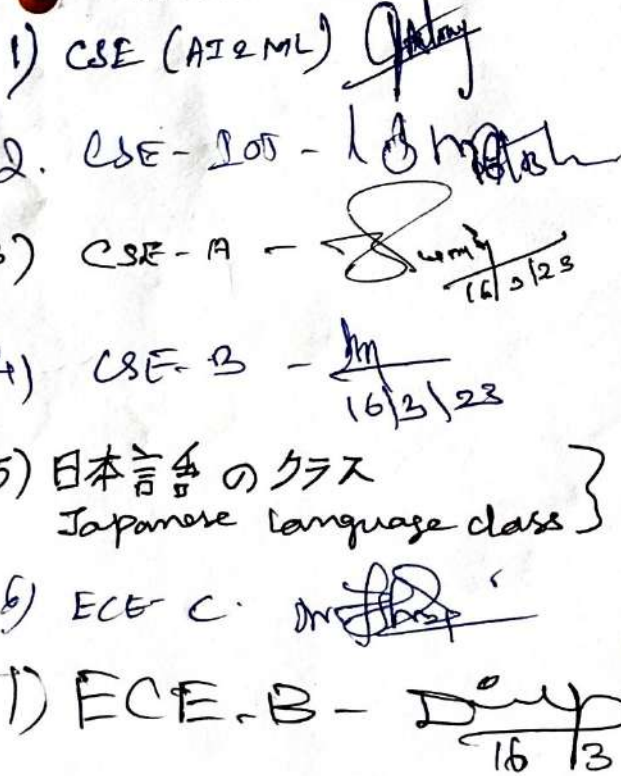 1) CSE (AI & ML)
2. CSE - IOT -
3) CSE - A - 16/3/23
4) CSE - B - 16/3/23
5) 日本言語のクラス
Japanese language class }
6) ECE - C.
7) ECE - B - 16/3